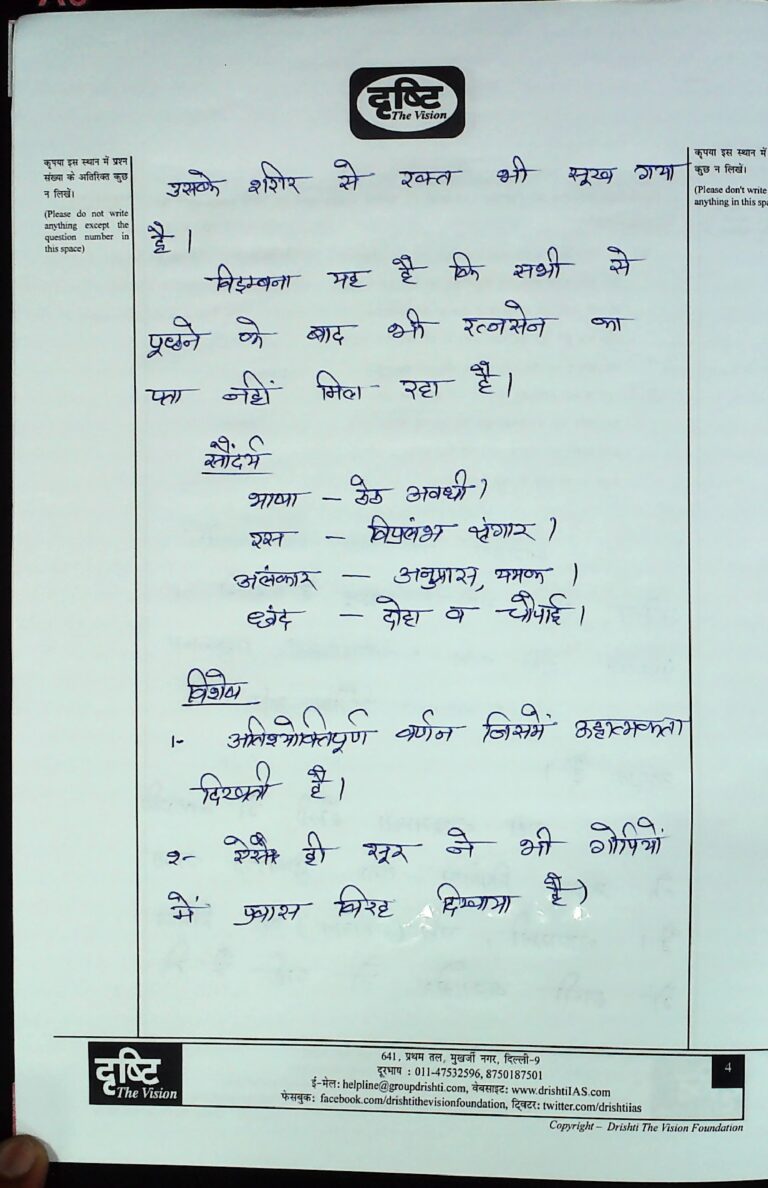 दृष्टि
The Vision
कृपया इस स्थान में प्रश्न
संख्या के अतिरिक्त कुछ
न लिखें।
(Please do not write
anything except the
question number in
this space)
कृपया इस स्थान में
कुछ न लिखें।
(Please don't write
anything in this spa
उसके शरीर से रक्त भी सूख गया
है।
विडम्बना यह है कि सभी से
पूछने के बाद भी रत्नसेन का
पता नहीं मिल रहा है।
सौंदर्य
भाषा – ठेठ अवधी।
रस – विप्रलंभ श्रृंगार।
अलंकार – अनुप्रास, यमक।
छंद – दोहा व चौपाई।
विशेष
1- अतिश्योक्तिपूर्ण वर्णन जिसमें ऊहात्मकता
दिखती है।
2- ऐसे ही सूर ने भी गोपियों
में प्रवास विरह दिखाया है।
दृष्टि
The Vision
641, प्रथम तल, मुखर्जी नगर, दिल्ली-9
दूरभाष : 011-47532596, 8750187501
ई-मेल: helpline@groupdrishti.com, वेबसाइट: www.drishtiIAS.com
फेसबुक: facebook.com/drishtithevisionfoundation, ट्विटर: twitter.com/drishtiias
4
Copyright – Drishti The Vision Foundation